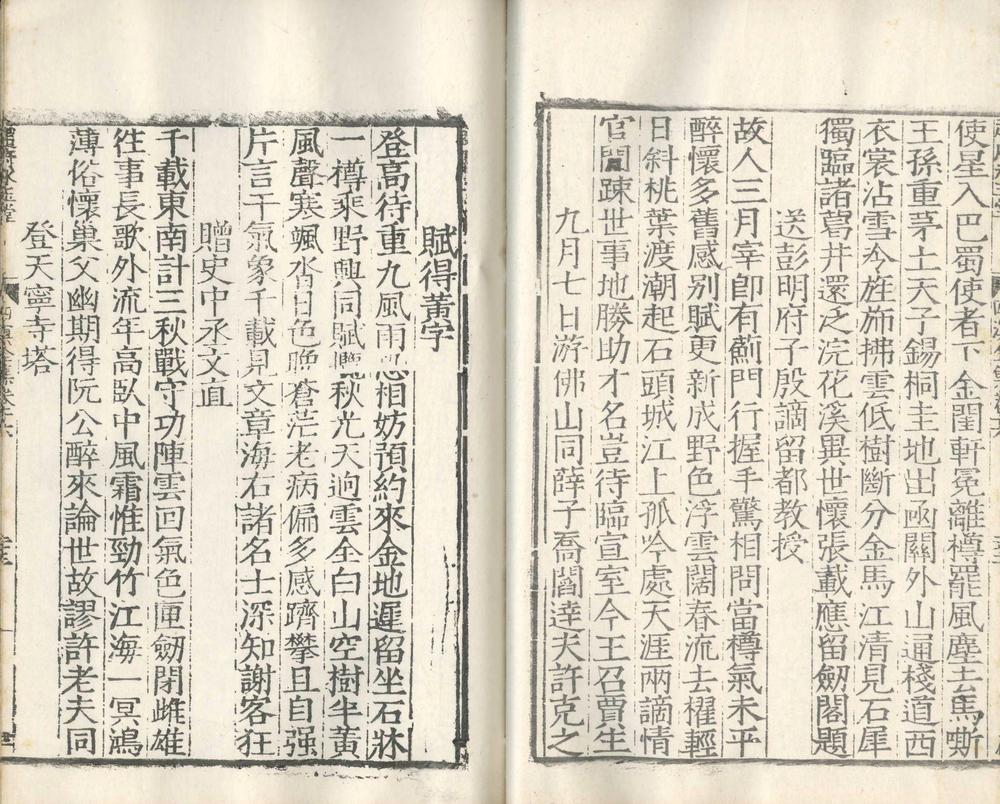 使星入巴蜀使者下金閨軒冕離樽罷風塵去馬嘶
王孫重茅土天子錫桐圭地出函關外山通棧道西
衣裳沾雪今旌斾拂雲低樹斷分金馬江清見石犀
獨臨諸葛井還之浣花溪異世懷張載應留劒閣題
送彭明府子殷謫留都教授
故人三月宰卽有薊門行握手驚相問當樽氣未平
醉懷多舊感别賦更新成野色浮雲闊春流去櫂輕
日斜桃葉渡潮起石頭城江上孤吟處天涯兩謫情
官閒踈世事地勝助才名豈待臨宣室今王召賈生
九月七日游佛山同薛子喬閻逹夫許克之
賦得黄字
登高待重九風雨恐相妨預約來金地遲留坐石牀
一樽乘野興同賦秋光天逈雲全白山空樹半黄
風聲寒颯沓日色晚蒼茫老病偏多感躋攀且自强
片言干氣象千載見文章海右諸名士深知謝客狂
贈史中丞文直
千載東南計三秋戰守功陣雲回氣色匣劒閉雌雄
徃事長歌外流年高臥中風霜惟勁竹江海一冥鴻
薄俗懷巢父幽期得阮公醉來論世故謬許老夫同
登天寧寺塔